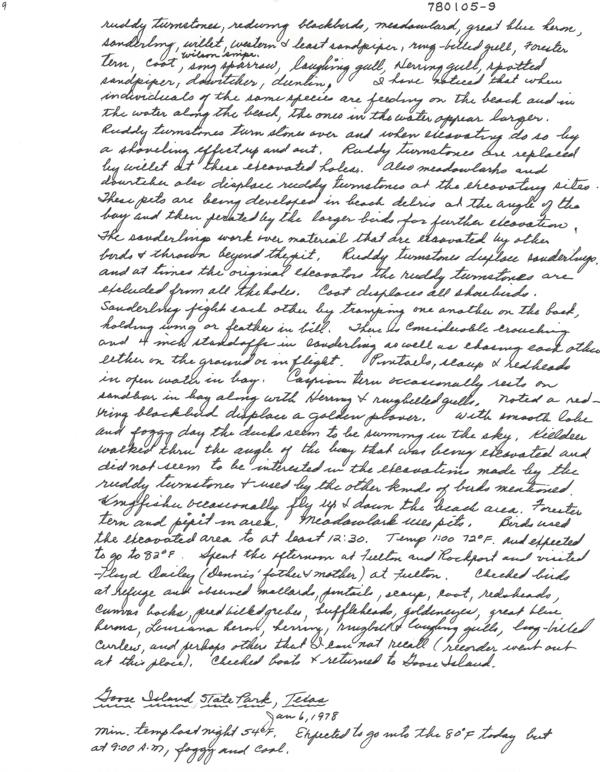 9
780105-9
ruddy turnstones, redwing blackbirds, meadowlark, great blue heron,
sanderling, willet, western & least sandpiper, ring-billed gull, Forester
wilson snipe.
tern, coot, song sparrow, laughing gull, Herring gull, spotted
sandpiper, dowitcher, dunlin. I have noticed that when
individuals of the same species are feeding on the beach and in
the water along the beach, the ones in the water appear larger.
Ruddy turnstones turn stones over and when excavating do so by
a shoveling effect up and out. Ruddy turnstones are replaced
by willet at these excavated holes. Also meadowlarks and
dowitcher also displace ruddy turnstones at the excavating sites.
These pits are being developed in beach debris at the angle of the
bay and then pirated by the larger birds for further excavation.
The sanderlings work over material that are excavated by other
birds & thrown beyond the pit. Ruddy turnstones displace sanderlings.
and at times the original excavators the ruddy turnstones are
excluded from all the holes. Coot displaces all shorebirds.
Sanderling fight each other by tramping one another on the back,
holding wing or feather in bill. There is considerable crouching
and 4 inch standoffs in sanderling as well as chasing each other
either on the ground or in flight. Pintails, scaup & redheads
in open water in bay. Caspian tern occasionally rests on
sandbar in bay along with Herring & ringbilled gulls. Noted a red-
wing blackbird displace a golden plover. With smooth lake
and foggy day the ducks seem to be swimming in the sky. Killdeer
walked thru the angle of the bay that was being excavated and
did not seem to be interested in the excavations made by the
ruddy turnstones & used by the other kinds of birds mentioned.
Kingfisher occasionally fly up & down the beach area. Forester
tern and pipit in area. Meadowlark uses pits. Birds used
the excavated area to at least 12:30. Temp 1100 72°F. and expected
to go to 82°F. Spent the afternoon at Fulton and Rockport and visited
Floyd Dailey (Dennis' father & mother) at Fulton. Checked birds
at refuge and observed mallards, pintails, scaup, coot, redheads,
canvas backs, pied billed grebes, buffleheads, goldeneyes, great blue
herons, Louisiana heron, herring, ringbill & laughing gulls, long-billed
curlew, and perhaps others that I can not recall (recorder went out
at this place). Checked boats & returned to Goose Island.
Goose Island State Park, Texas
Jan 6, 1978
Min. temp last night 54°F. Expected to go into the 80°F today but
at 9:00 A.M, foggy and cool.